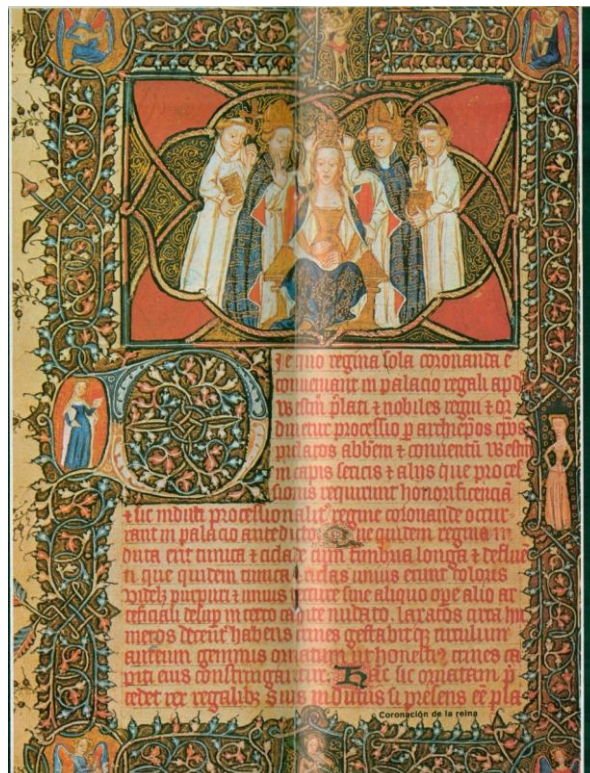 ie quo regina sola coronanda ē
conueniant in palacio regali apd
westm̄ p̄lati ⁊ nobiles regni ⁊ or
processio p archiep̄os ep̄os
abb̄em ⁊ conuentū westm̄
⁊ alijs que proces
sionis requirunt honorificenciā
⁊ sic induti regine coronande occur
rant in palacio antedicto. Que quidem regina in
duta erit tunica ⁊ cum fimbria longa ⁊ deflue
n que quidem tunica ⁊ unius erunt coloris
⁊ unius sine aliquo ope alio ar
teficiali desup in nudato. laxatos circa hu
meros habens crines gestabitq; circulum
aureum gemmis ornatum ut honestius crines ca
piti eius constringantur. Hāc sic ornatam p̄
cedet rex regalib; suis indutus si presens ēē
Coronación de la reina